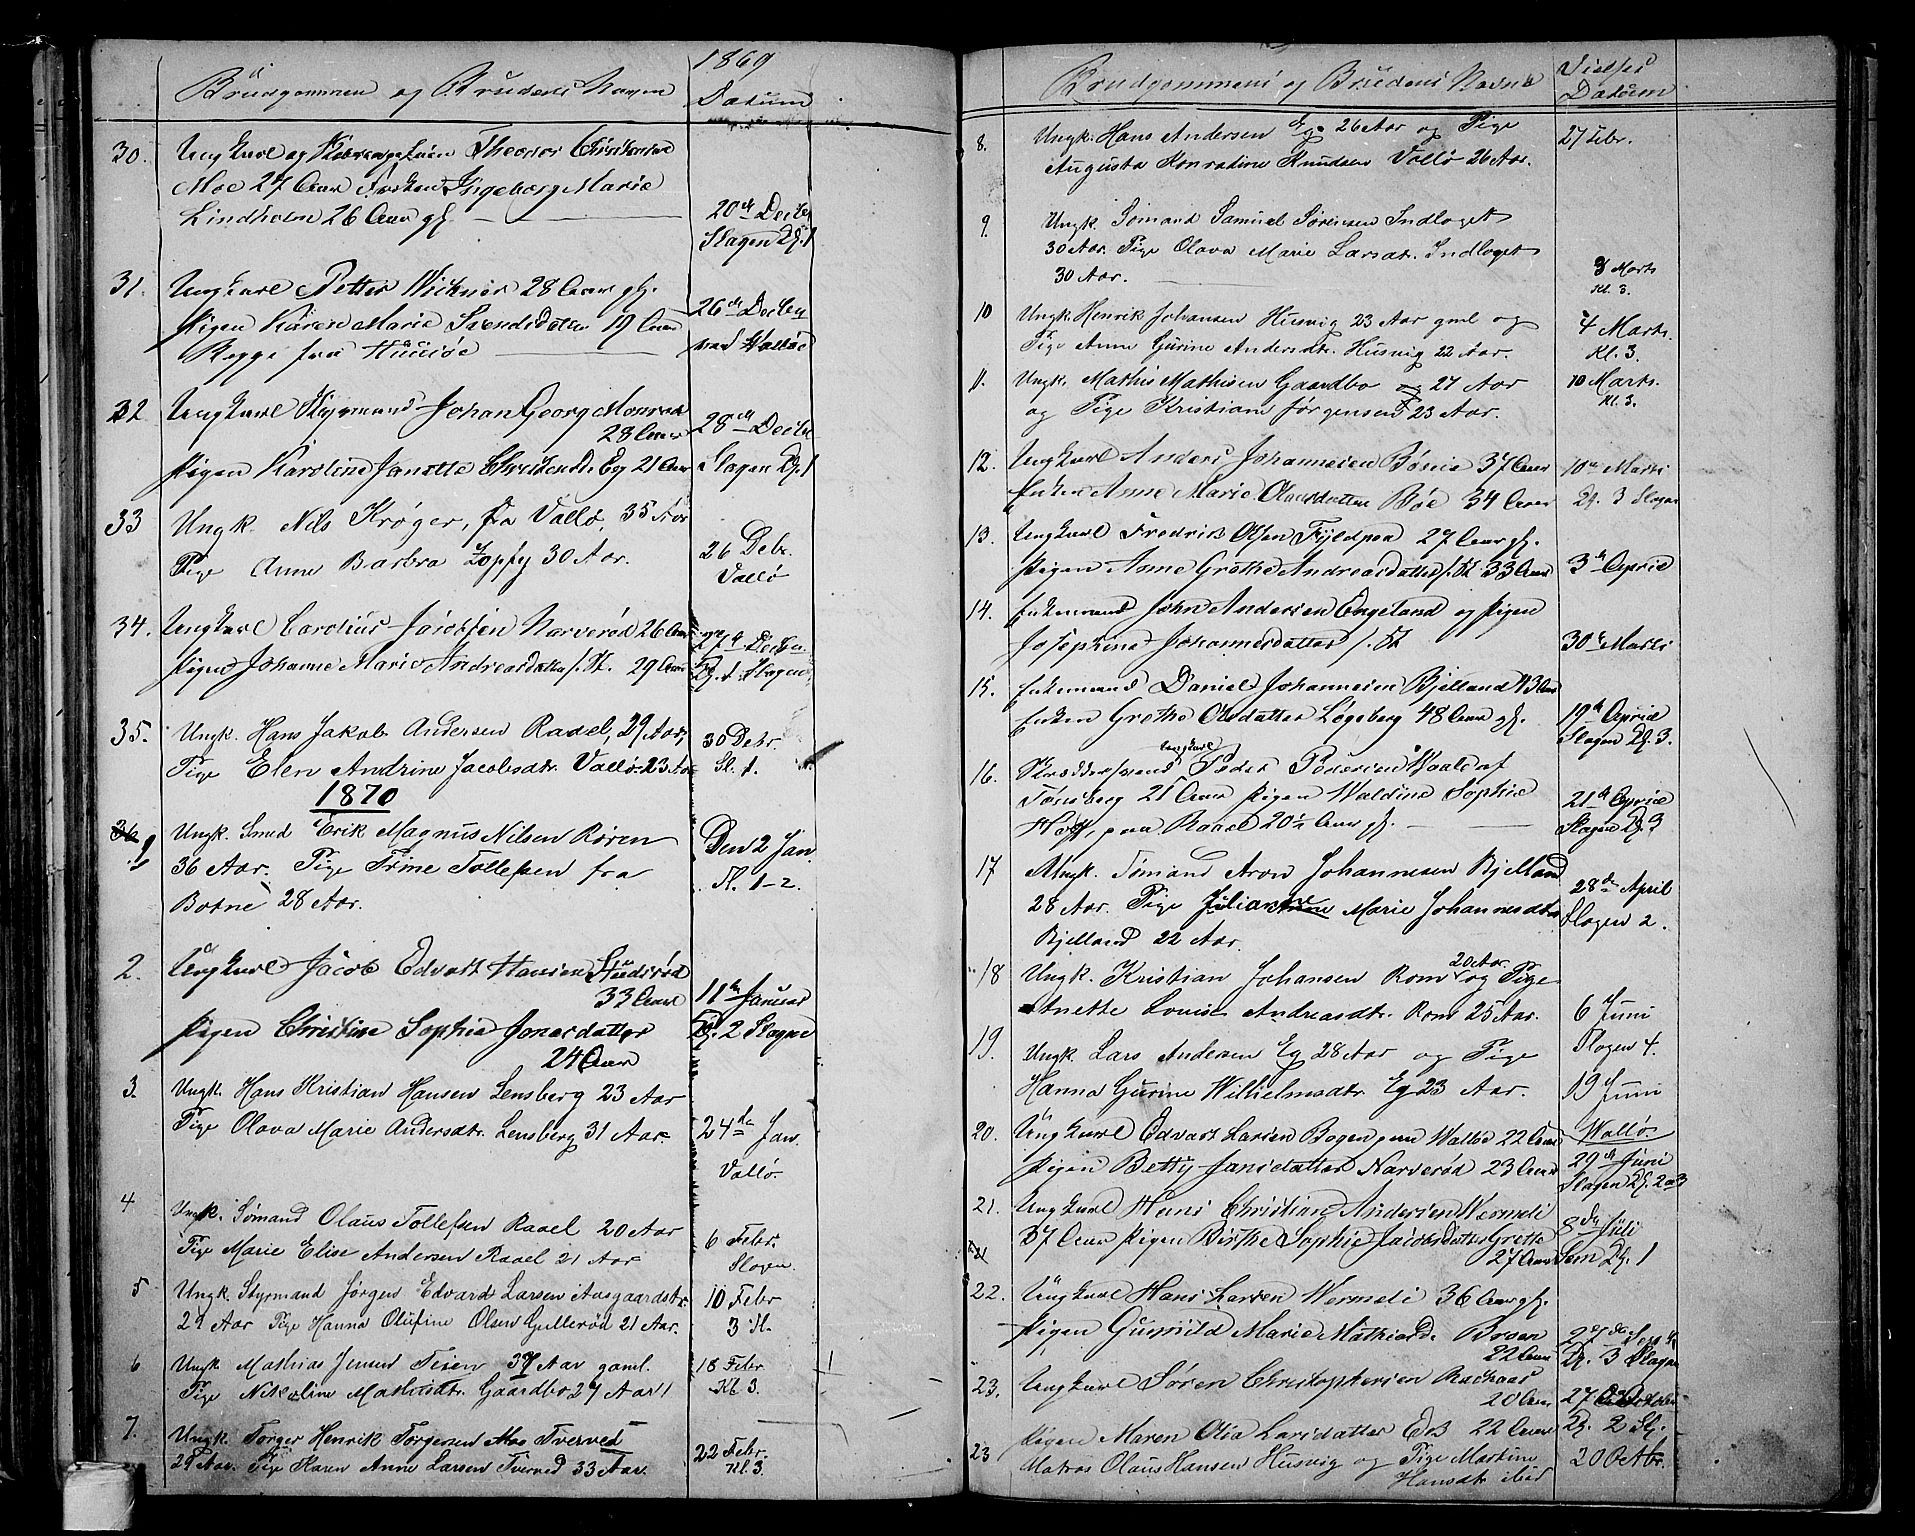 1869
Brudgommen og Brudens Navn
Datum
30. Ungkarl og Theodor Christensen
Moe 27 Aar Frøken Ingeborg Marie
Lindholm 26 Aar gl.
20de Decbr
Slagen Kl. 1
31. Ungkarl Petter 28 Aar gl.
Pigen Karen Marie Svendsdatter 19 Aar
Begge fra Husøe
26de Decbr
ved Valløe
32 Ungkarl Styrmand Johan Georg Monrad
28 Aar
Pigen Karoline Janette Christensd. Eg 21 Aar
28de Decbr
Slagen Kl. 1
33 Ungk. Nils Krøger, fra Vallø, 35 Aar
Pige Anne Barbra Zopfy 30 Aar.
26 Debr.
Vallø
34. Ungkarl Carolius Jacobsen Narverød 26 Aar
Pigen Johanne Marie Andreasdatter s. St. 29 Aar
27de Decbr
Kl. 1 Slagen
35. Ungk. Hans Jakob Andersen Raael, 29 Aar,
Pige Elen Andrine Jacobsdt. Vallø 23 Aar
30 Debr.
Sl. 1.
1870
36 1 Ungk. Smed Erik Magnus Nilsen Røren
36 Aar. Pige Trine Tollefsen fra
Botne 28 Aar.
Den 2 Jan
Kl. 1-2.
2. Ungkarl Jacob Edvart Hansen
33 Aar
Pigen Christine Sophie Jonasdatter
24 Aar
11te Januar
Kl. 2 Slagen
3. Ungk. Hans Kristian Hansen Lensberg 23 Aar
Pige Olava Marie Andersdt. Lensberg 31 Aar.
24de Jan.
Vallø.
4 Ungk. Sømand Olaus Tollefsen Raael 20 Aar
Pige Marie Elise Andersen Raael 21 Aar
6 Febr.
Slagen.
5 Ungk. Styrmand Jørgen Edvard Larsen Aasgaardstr.
29 Aar Pige Hanna Olufine Olsen Gullerød 21 Aar.
10 Febr
3 Sl.
6 Ungk Mathias Jensen Teien 37 Aar gaml.
Pige Nikoline Mathisdt. Gaardbo 27 Aar
18 Febr
Kl 3.
7. Ungk. Torger Henrik Torgersen Moe Tverved
29 Aar. Pige Karen Anne Larsen Tverved 33 Aar.
22 Febr.
Kl 3.
Brudgommens og Brudens Navne
Vielses
Datum
8. Ungk. Hans Andersen Eg 26 Aar og Pige
Augusta Konradine Knudsen Vallø 26 Aar.
27 Febr.
9. Ungk. Sømand Samuel Sørensen Indlaget
30 Aar. Pige Olava Marie Larsdt. Indlaget
30 Aar.
3 Marts
Kl. 3.
10 Ungk. Henrik Johansen Husvig 23 Aar gml og
Pige Anne Gurine Andersdt. Husvig 22 Aar.
4 Marts.
Kl. 3.
11. Ungk. Mathis Mathisen Gaardbo og 27 Aar
og Pige Kristiane Jørgensen 23 Aar.
10 Marts.
Kl. 3.
12. Ungkarl Anders Johannesen Bøe 37 Aar
Enken Anne Marie Olausdatter Bøe 34 Aar
10de Marts
Kl. 3 Slagen
13. Ungkarl Fredrik Olsen 27 Aar gl.
Pigen Anne Grethe Andreasdatter s. St 33 Aar
3de April
14. Enkemand John Andersen Engeland og Pigen
Josephine Johannesdatter s. St
30te Marts
15. Enkemand Daniel Johannesen Bjelland 43 Aar
Enken Grethe Olsdatter Løgeberg 48 Aar gl.
19de April
Slagen Kl. 3.
16. Skræddersvend Ungkarl Peder Pedersen Waale af
Tønsberg 21 Aar Pigen Waldine Sophie
Hoff, paa Raael 20½ Aar gl.
21de April
Slagen Kl. 3
17 Ungk. Sømand Aron Johannesen Bjelland
28 Aar. Pige Juliane Marie Johannesdt.
Bjelland 22 Aar.
28de April
Slagen 2.
18 Ungk. Kristian Johansen Rom 20 Aar og Pige
Anette Louise Andreasdt. Rom 25 Aar.
6 Juni
Slagen 4.
19. Ungk. Lars Andersen Eg 28 Aar og Pige
Hanna Gurine Wilhelmsdt. Eg 23 Aar.
19 Juni
Wallø.
20. Ungkarl Edvart Larsen Bogen paa Walløe 22 Aar
Pigen Betty Jansdatter Narverød 23 Aar
29de Juni
Slagen Kl. 2 a 3
21. Ungkarl Hans Christian Andersen Wermeli
37 Aar Pigen Birthe Sophie Jacobsdatter Grette
27 Aar
8de Juli
Sem Kl. 1
22. Ungkarl Hans Larsen Wermeli 36 Aar gl.
Pigen Gunnild Marie Mathiasd. Basen
22 Aar
27de Sept
Kl. 3 Slagen
23. Ungkarl Søren Christophersen
20 Aar
Pigen Maren Olia Larsdatter Eek 22 Aar
27 October
Kl. 2 Sl.
23 Matros Olaus Hansen Husvig og Pige Martine
Hansdt. ibid
20 Oktbr.